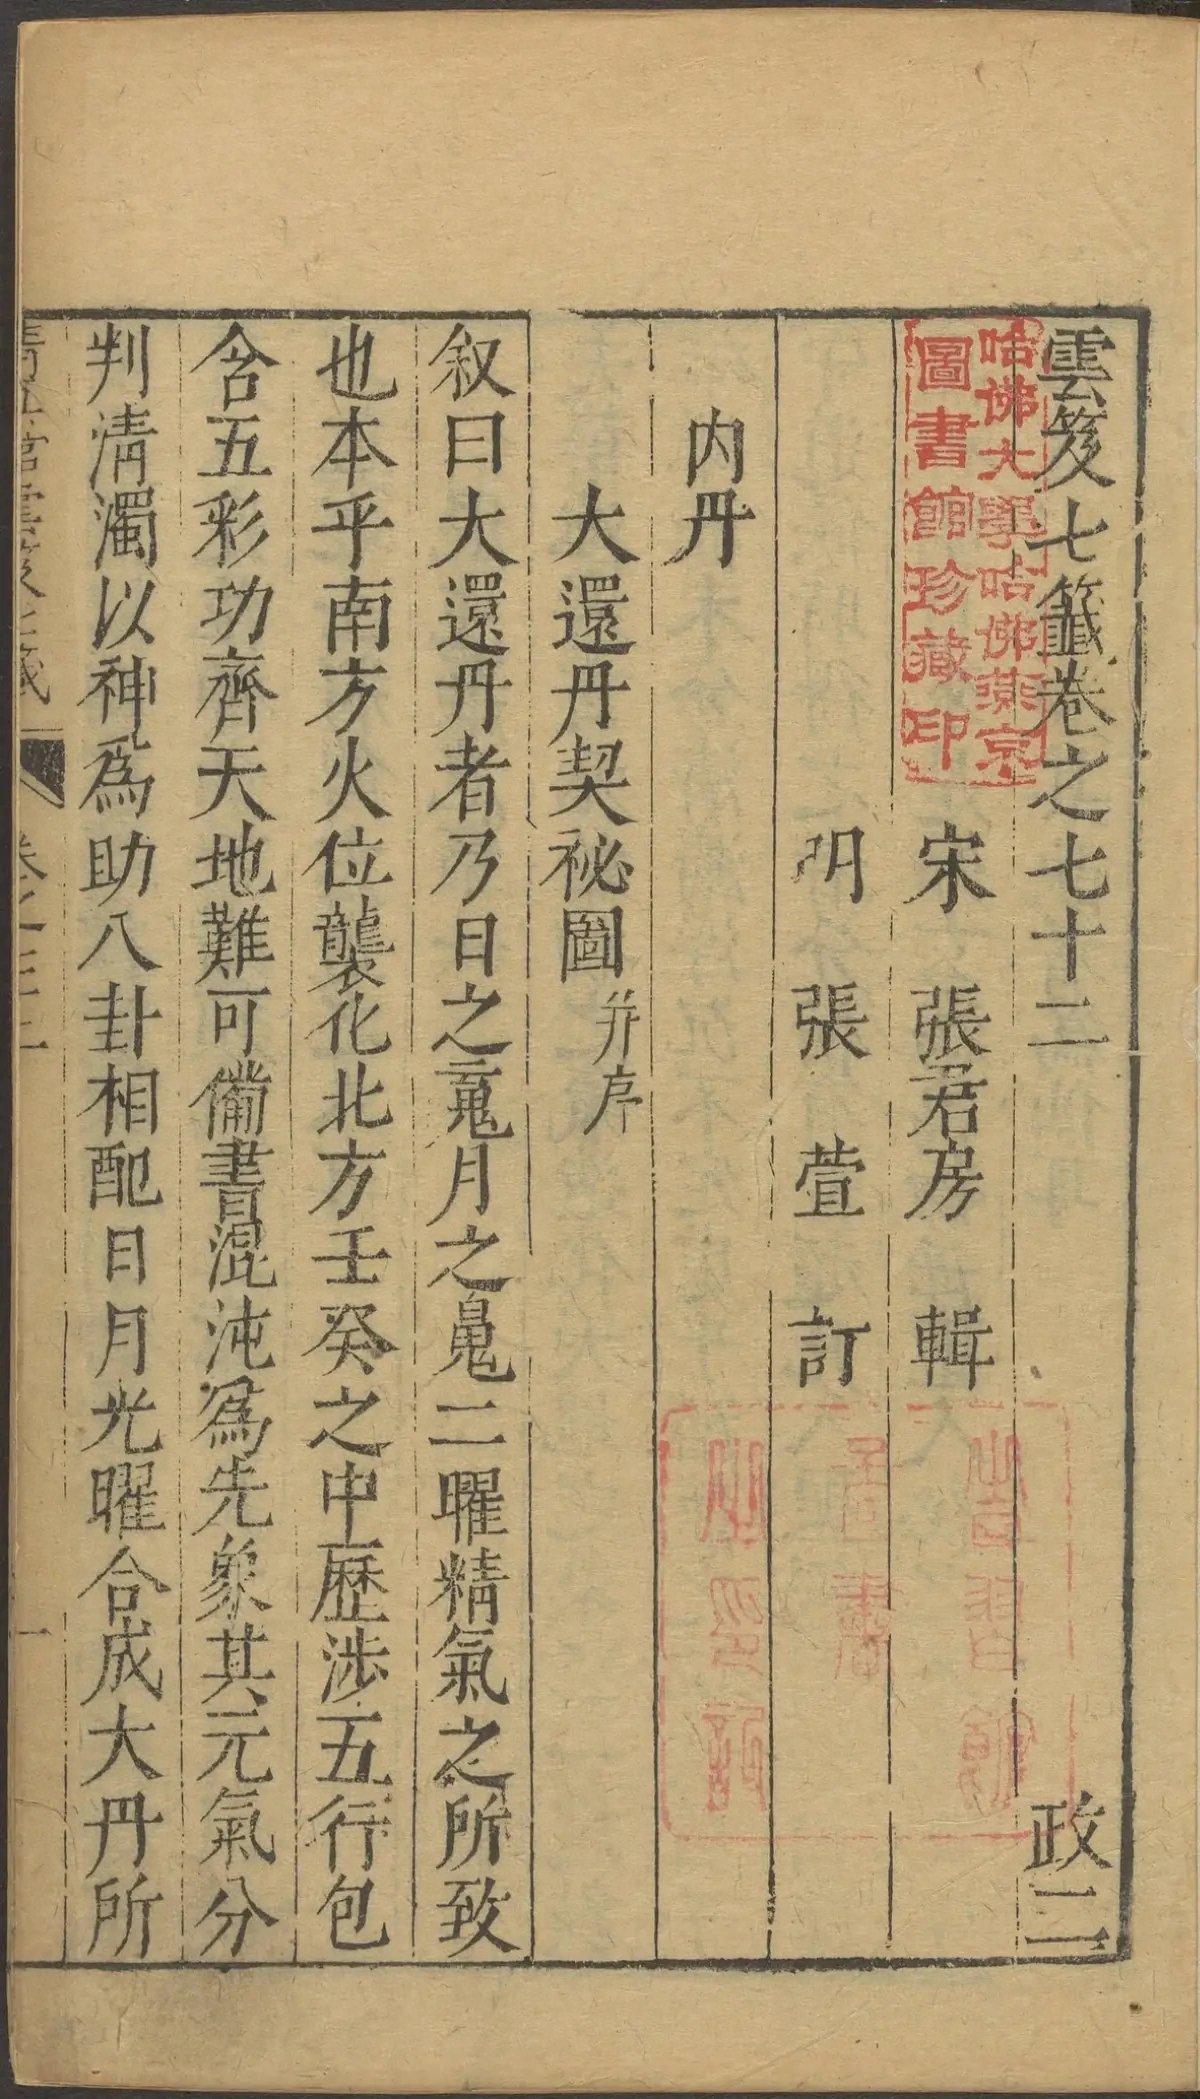 雲笈七籤卷之七十二 政二
宋 張君房 輯
明 張萱 訂
內丹
大還丹契祕圖 并序
叙曰大還丹者乃日之䰟月之䰟二曜精氣之所致
也本乎南方火位襲化北方壬癸之中歷涉五行包
含五彩功齊天地難可備書混沌爲先象其元氣分
判清濁以神爲助八卦相配日月光曜合成大丹所
哈佛大學哈佛燕京
圖書館珍藏印